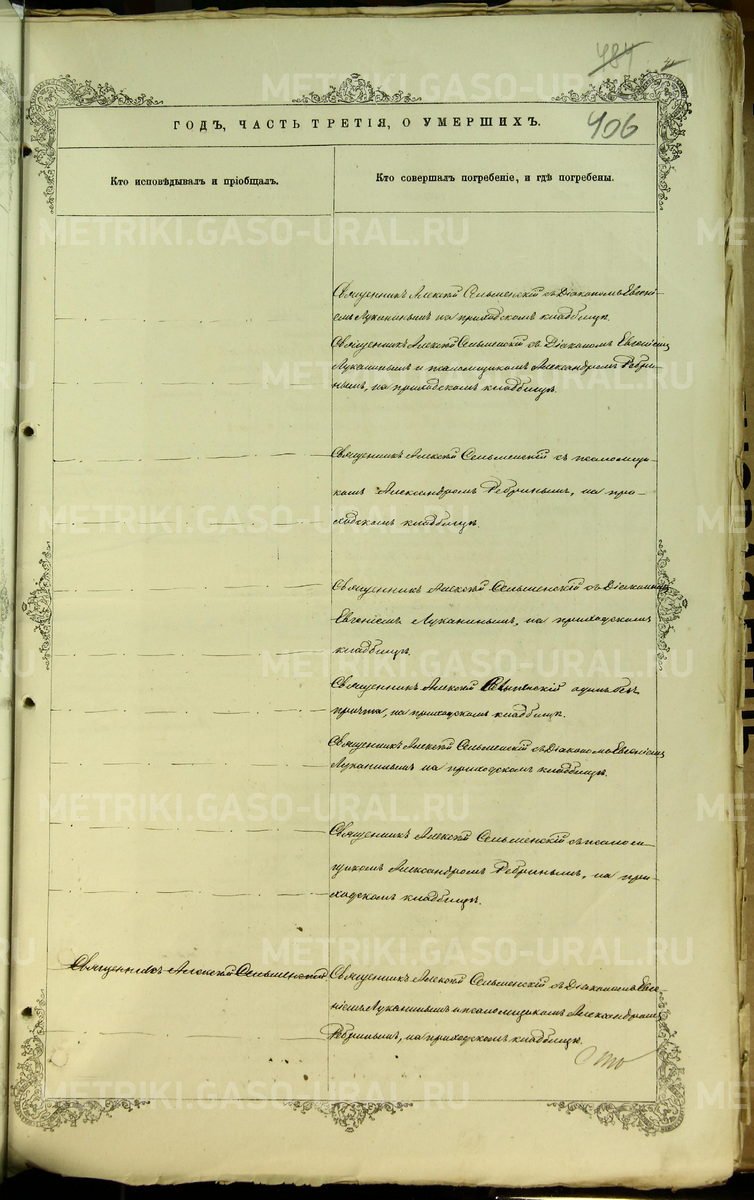 484
406
ГОДЪ, ЧАСТЬ ТРЕТІЯ, О УМЕРШИХЪ.
Кто исповѣдывалъ и пріобщалъ.
Кто совершалъ погребеніе, и гдѣ погребены.
Священникъ Алексѣй Сельменскій съ Діакономъ Евгені-
емъ Луканинымъ на приходскомъ кладбищѣ.
Священникъ Алексѣй Сельменскій съ Діакономъ Евгеніемъ
Луканинымъ и псаломщикомъ Александромъ Ребри-
нымъ, на приходскомъ кладбищѣ.
Священникъ Алексѣй Сельменскій съ псаломщи-
комъ Александромъ Ребринымъ, на при-
ходскомъ кладбищѣ.
Священникъ Алексѣй Сельменскій съ Діакономъ
Евгеніемъ Луканинымъ, на приходскомъ
кладбищѣ.
Священникъ Алексѣй Сельменскій одинъ безъ
причта, на приходскомъ кладбищѣ.
Священникъ Алексѣй Сельменскій съ Діакономъ Евгеніемъ
Луканинымъ на приходскомъ кладбищѣ.
Священникъ Алексѣй Сельменскій съ псалом-
щикомъ Александромъ Ребринымъ, на при-
ходскомъ кладбищѣ.
Священникъ Алексѣй Сельменскій
Священникъ Алексѣй Сельменскій съ Діакономъ Евге-
ніемъ Луканинымъ и псаломщикомъ Александромъ
Ребринымъ, на приходскомъ кладбищѣ.
METRIKI.GASO-URAL.RU